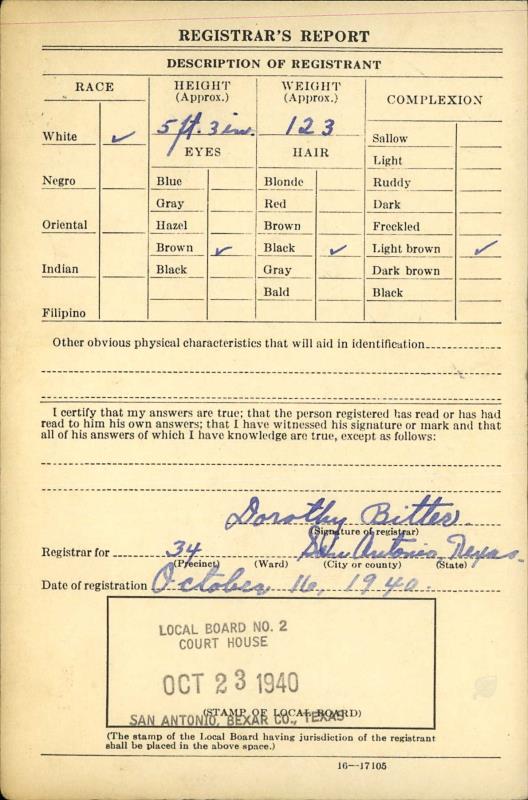 REGISTRAR'S REPORT
DESCRIPTION OF REGISTRANT
RACE
HEIGHT
(Approx.)
WEIGHT
(Approx.)
COMPLEXION
White ✓
5 ft. 3 in.
123
Sallow
EYES
HAIR
Light
Negro
Blue
Blonde
Ruddy
Gray
Red
Dark
Oriental
Hazel
Brown
Freckled
Brown ✓
Black ✓
Light brown ✓
Indian
Black
Gray
Dark brown
Bald
Black
Filipino
Other obvious physical characteristics that will aid in identification
I certify that my answers are true; that the person registered has read or has had
read to him his own answers; that I have witnessed his signature or mark and that
all of his answers of which I have knowledge are true, except as follows:
Dorothy Bitter
(Signature of registrar)
Registrar for 34 San Antonio, Texas.
(Precinct) (Ward) (City or county) (State)
Date of registration October 16, 1940.
LOCAL BOARD NO. 2
COURT HOUSE
OCT 23 1940
(STAMP OF LOCAL BOARD)
SAN ANTONIO, BEXAR CO., TEXAS
(The stamp of the Local Board having jurisdiction of the registrant
shall be placed in the above space.)
16—17105